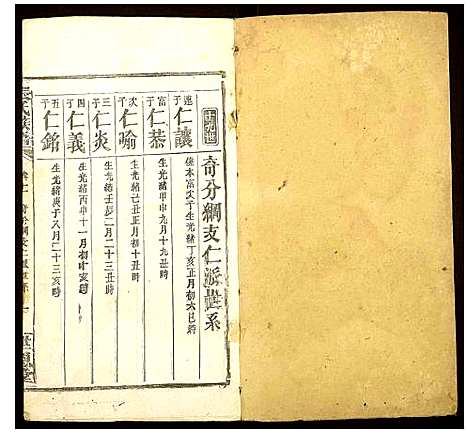 奇分綱支仁派世系
進子仁讓
係本富次子生光緒丁亥正月初六巳時
富子仁恭
生光緒甲申九月十九丑時
次子仁喻
生光緒己丑正月初十丑時
三子仁炎
生光緒壬辰二月二十三亥時
四子仁義
生光緒丙申十一月初十亥時
五子仁銘
生光緒庚子八月二十三亥時
氏族譜